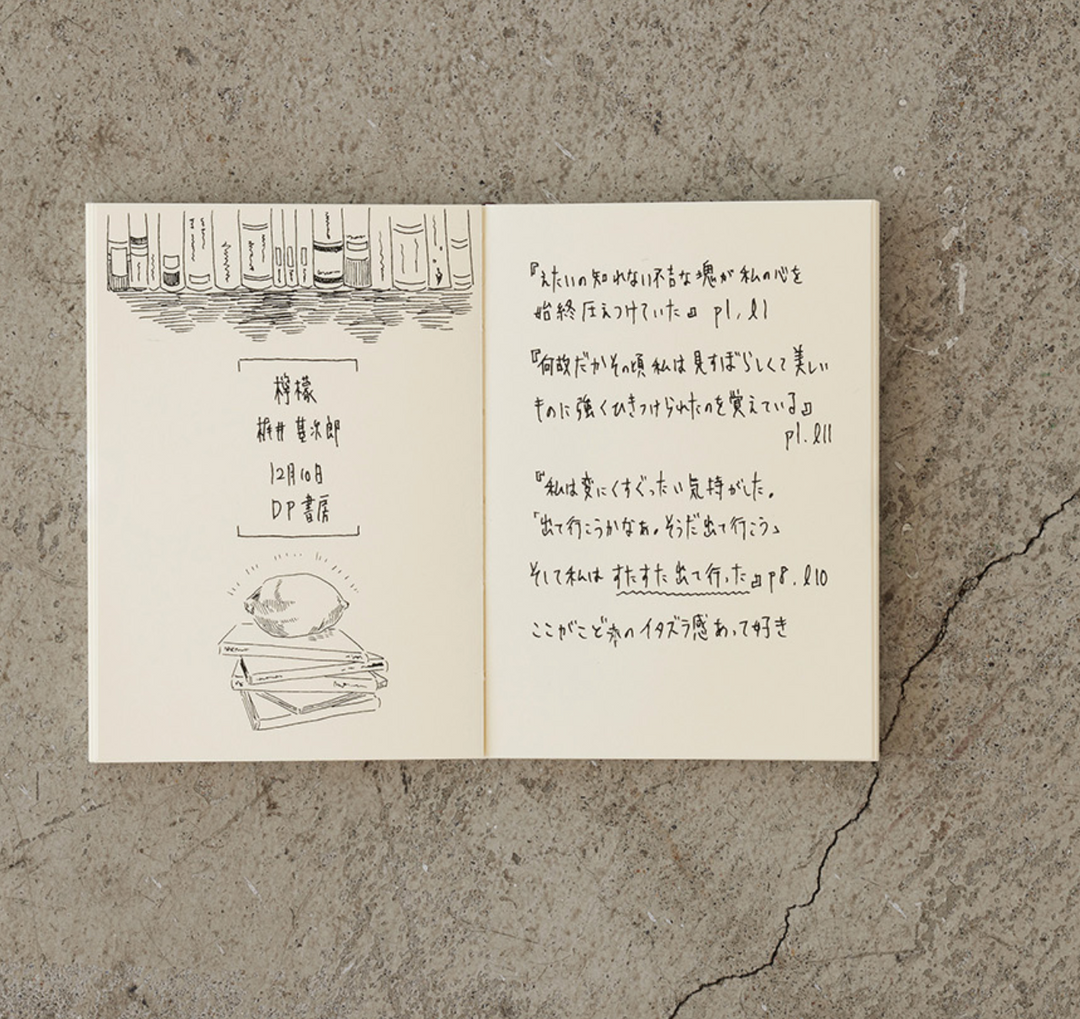 檸檬
梶井基次郎
12月10日
DP書房
『えたいの知れない不吉な塊が私の心を
始終圧えつけていた』 p1, l1
『何故だかその頃私は見すぼらしくて美しい
ものに強くひきつけられたのを覚えている』
p1. l11
『私は変にくすぐったい気持がした。
「出て行こうかなあ。そうだ出て行こう」
そして私はすたすた出て行った』p8. l10
ここがこど木のイタズラ感あって好き